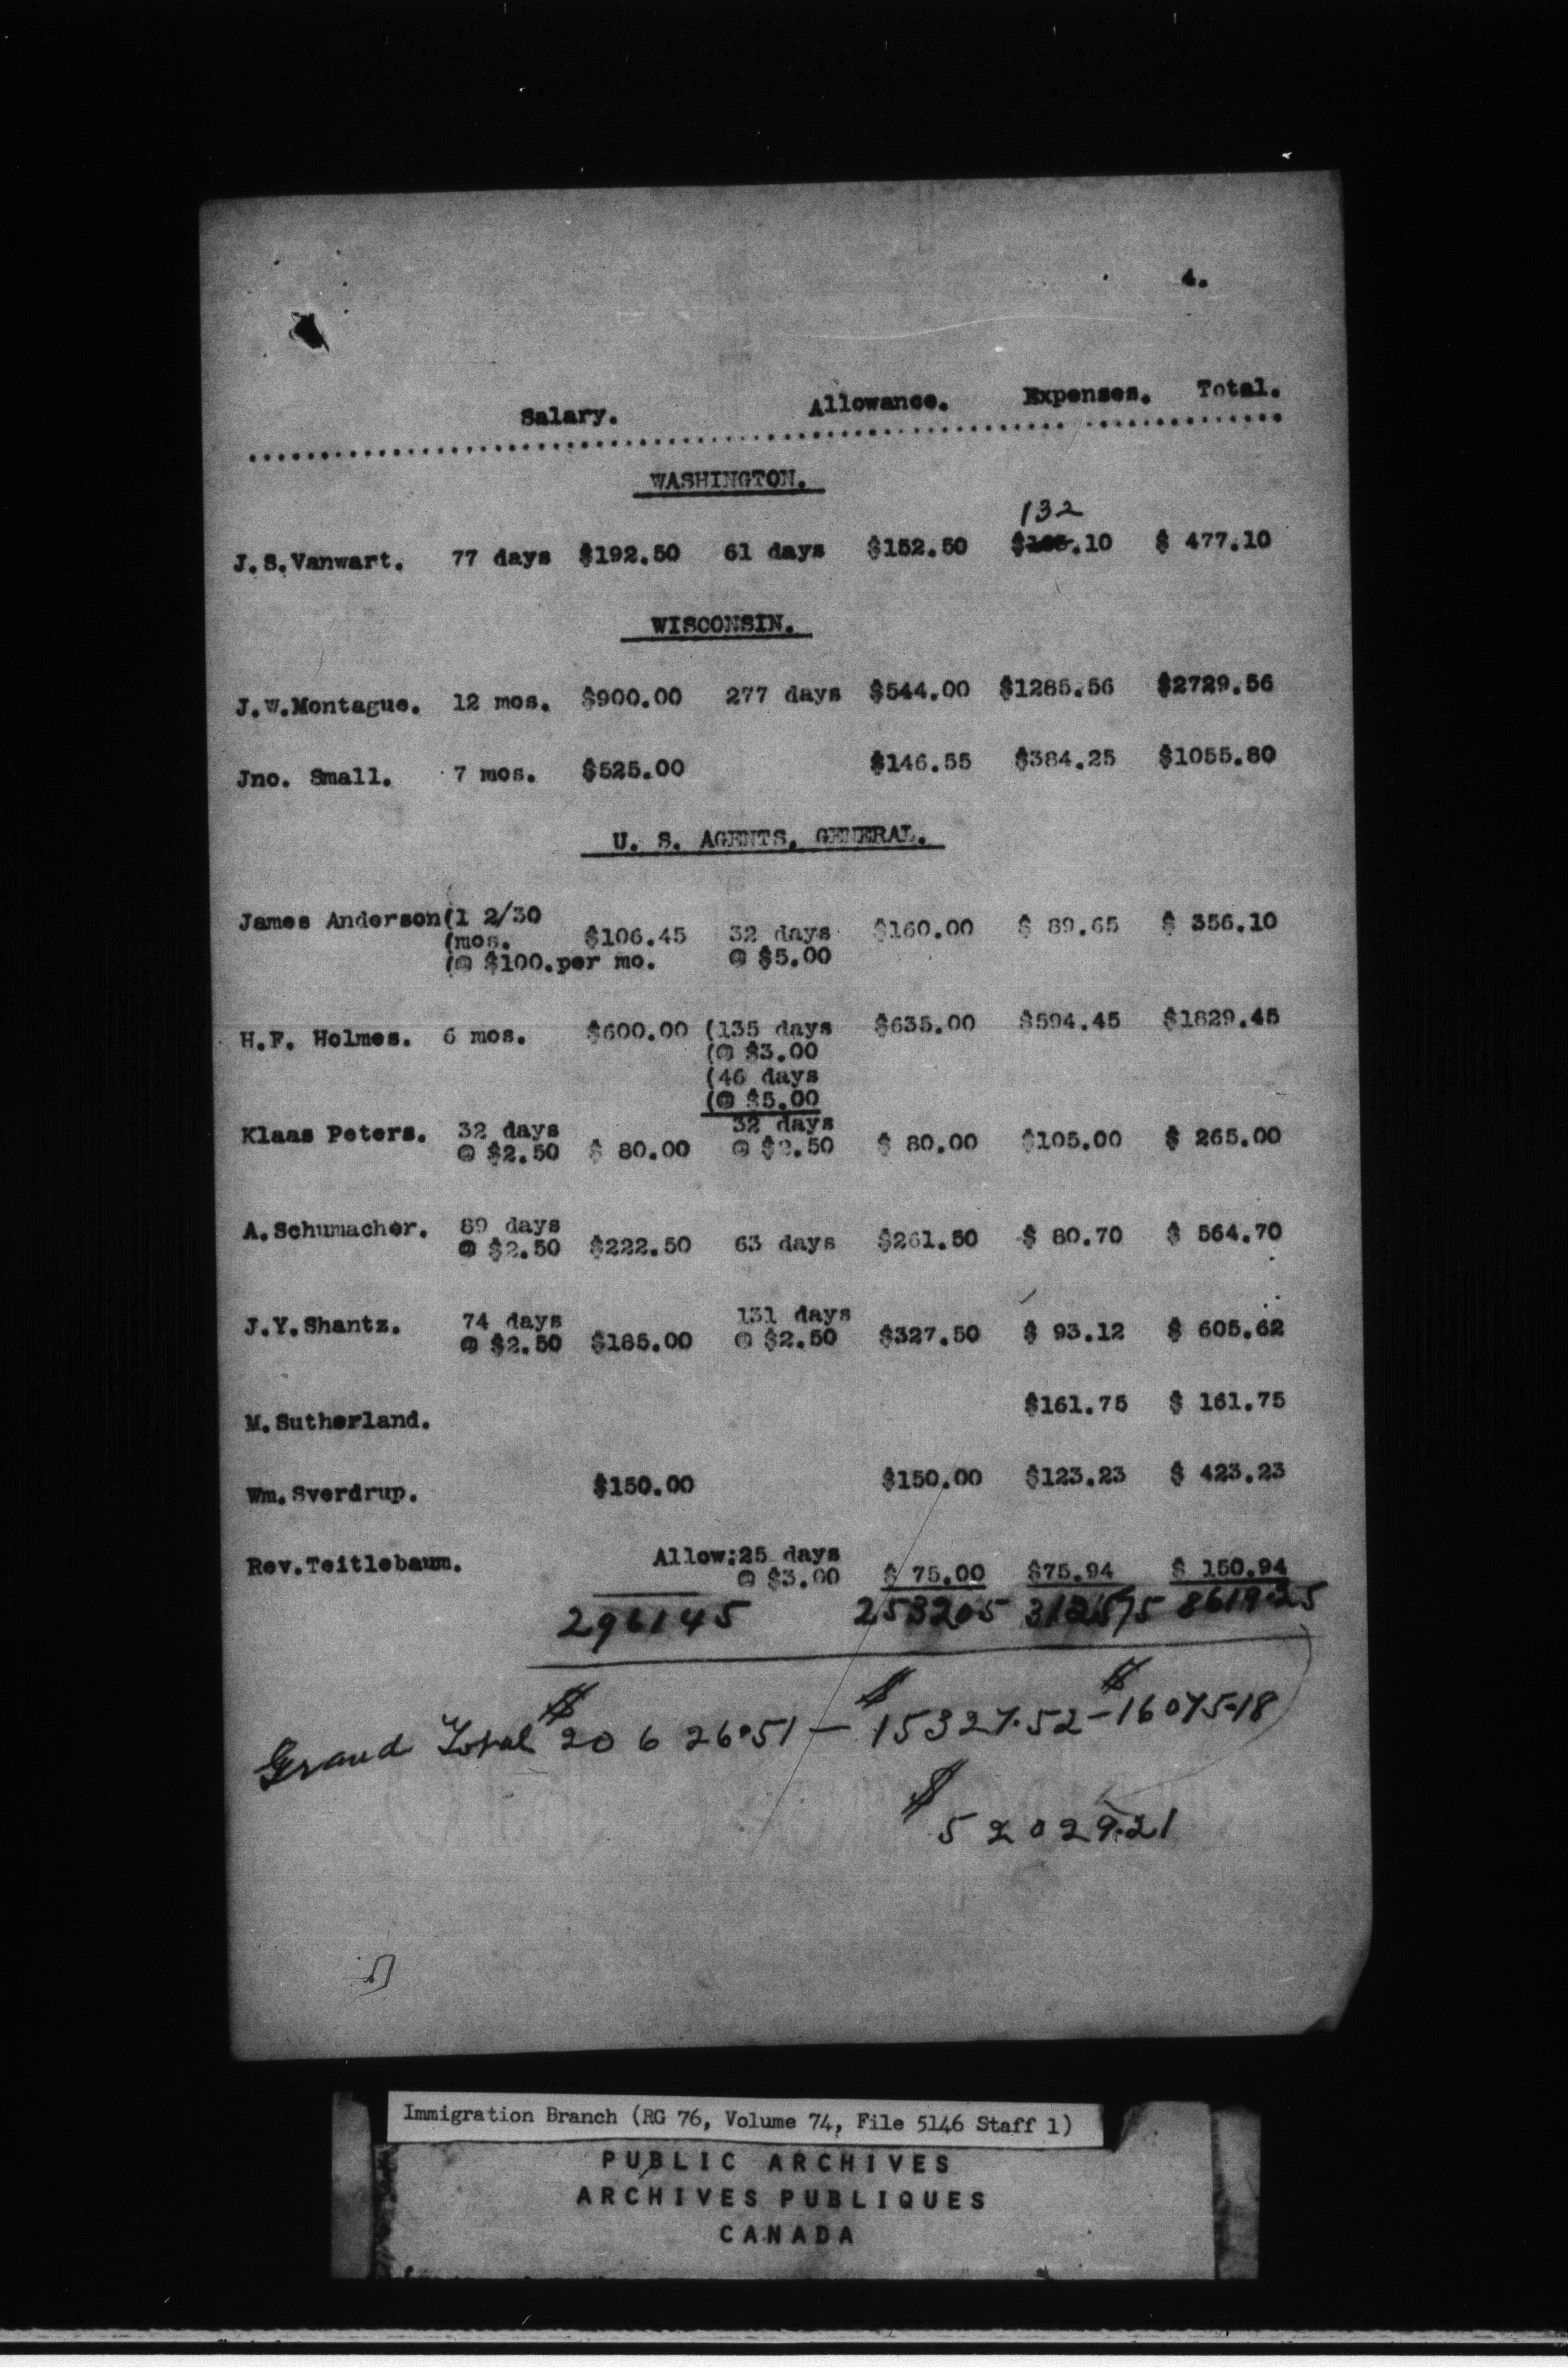 4.
Salary. Allowance. Expenses. Total.
WASHINGTON.
132
J.S.Vanwart. 77 days $192.50 61 days $152.50 $.10 $ 477.10
WISCONSIN.
J.W.Montague. 12 mos. $900.00 277 days $544.00 $1285.56 $2729.56
Jno. Small. 7 mos. $525.00 $146.55 $384.25 $1055.80
U. S. AGENTS, GENERAL.
James Anderson(1 2/30
(mos. $106.45 32 days $160.00 $ 89.65 $ 356.10
(@ $100.per mo. @ $5.00
H.F. Holmes. 6 mos. $600.00 (135 days $635.00 $594.45 $1829.45
(@ $3.00
(46 days
(@ $5.00
Klaas Peters. 32 days 32 days
@ $2.50 $ 80.00 @ $2.50 $ 80.00 $105.00 $ 265.00
A.Schumacher. 89 days
@ $2.50 $222.50 63 days $261.50 $ 80.70 $ 564.70
J.Y.Shantz. 74 days 131 days
@ $2.50 $185.00 @ $2.50 $327.50 $ 93.12 $ 605.62
M.Sutherland. $161.75 $ 161.75
Wm.Sverdrup. $150.00 $150.00 $123.23 $ 423.23
Rev.Teitlebaum. Allow:25 days
@ $3.00 $ 75.00 $75.94 $ 150.94
296145 253205 312575 8619.25
Grand Total $20626.51 — $15327.52 - $16075.18
$52029.21
Immigration Branch (RG 76, Volume 74, File 5146 Staff 1)
PUBLIC ARCHIVES
ARCHIVES PUBLIQUES
CANADA